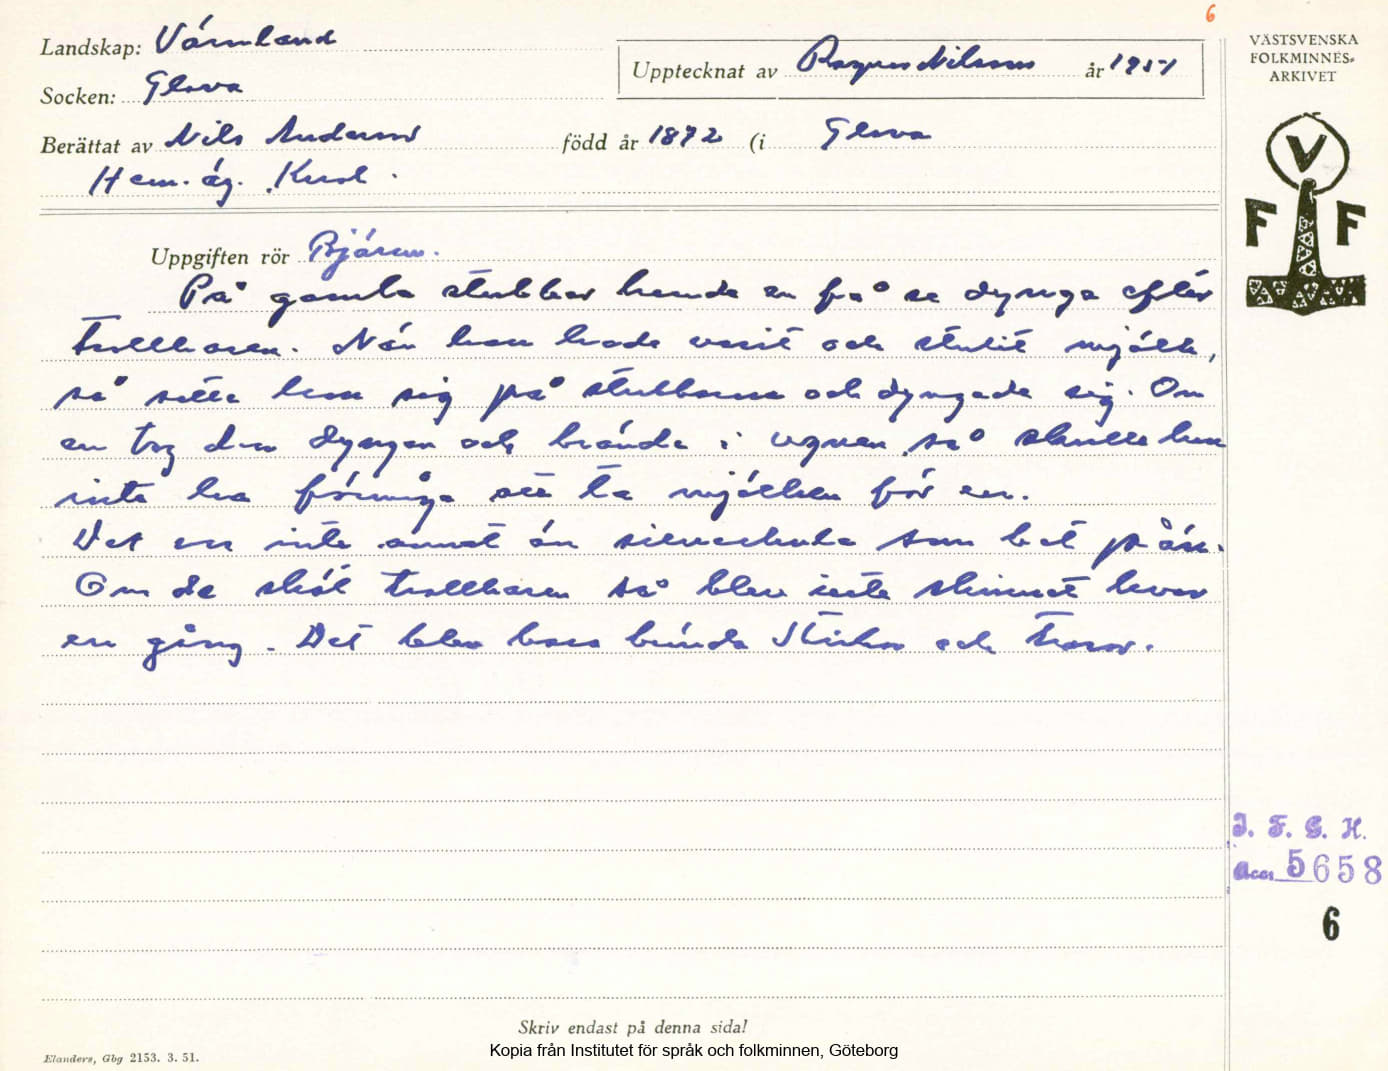 6
Landskap: Värmland
Socken: Glava
Upptecknat av Ragnar Nilsson år 1951
VÄSTSVENSKA
FOLKMINNES-
ARKIVET
Berättat av Nils Anderson född år 1872 (i Glava
Hem. äg.
V
F F
Uppgiften rör Bjären.
På gamla stubbar kunde en få se dynga efter
trollharen. När han hade varit och stulit mjölk,
så satte han sig på stubbarna och dyngade sig. Om
en tog den dyngan och brände i ugnen så skulle han
inte ha förmåga att ta mjölken för en.
Det var inte annat än silverkula som bet på än.
Om de sköt trollharen så blev inte skinnet kvar
en gång. Det blev bara brända stickor och trasor.
I. F. G. H.
Acc. 5658
6
Skriv endast på denna sida!
Kopia från Institutet för språk och folkminnen, Göteborg
Elanders, Gbg 2153. 3. 51.